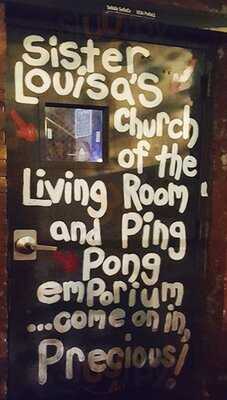 Sister
Louisa's
Church
of the
Living Room
and Ping
Pong
emporium
...come on in,
Precious!